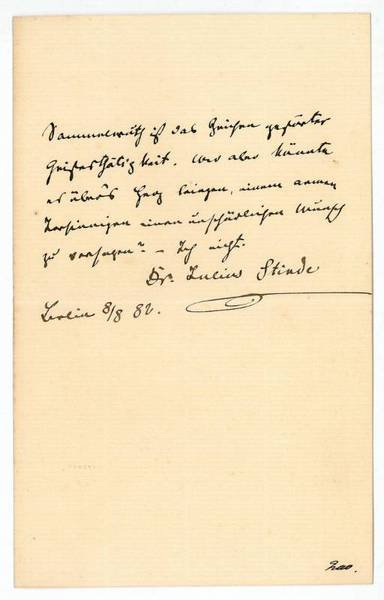 Sammelwuth ist das Zeichen gestörter
Geistesthätigkeit. Wer aber könnte
es über's Herz bringen, einem armen
Irrsinnigen einen unschädlichen Wunsch
zu versagen? – Ich nicht.
Dr. Julius Stinde
Berlin 8/8 82.